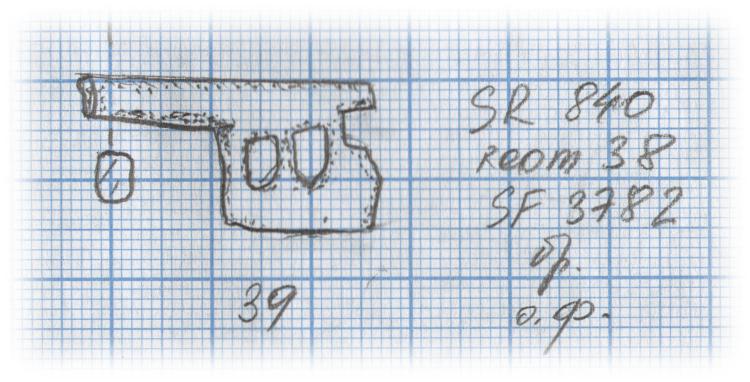 SR 840
ROOM 38
SF 3782
бр.
о.ф.
39